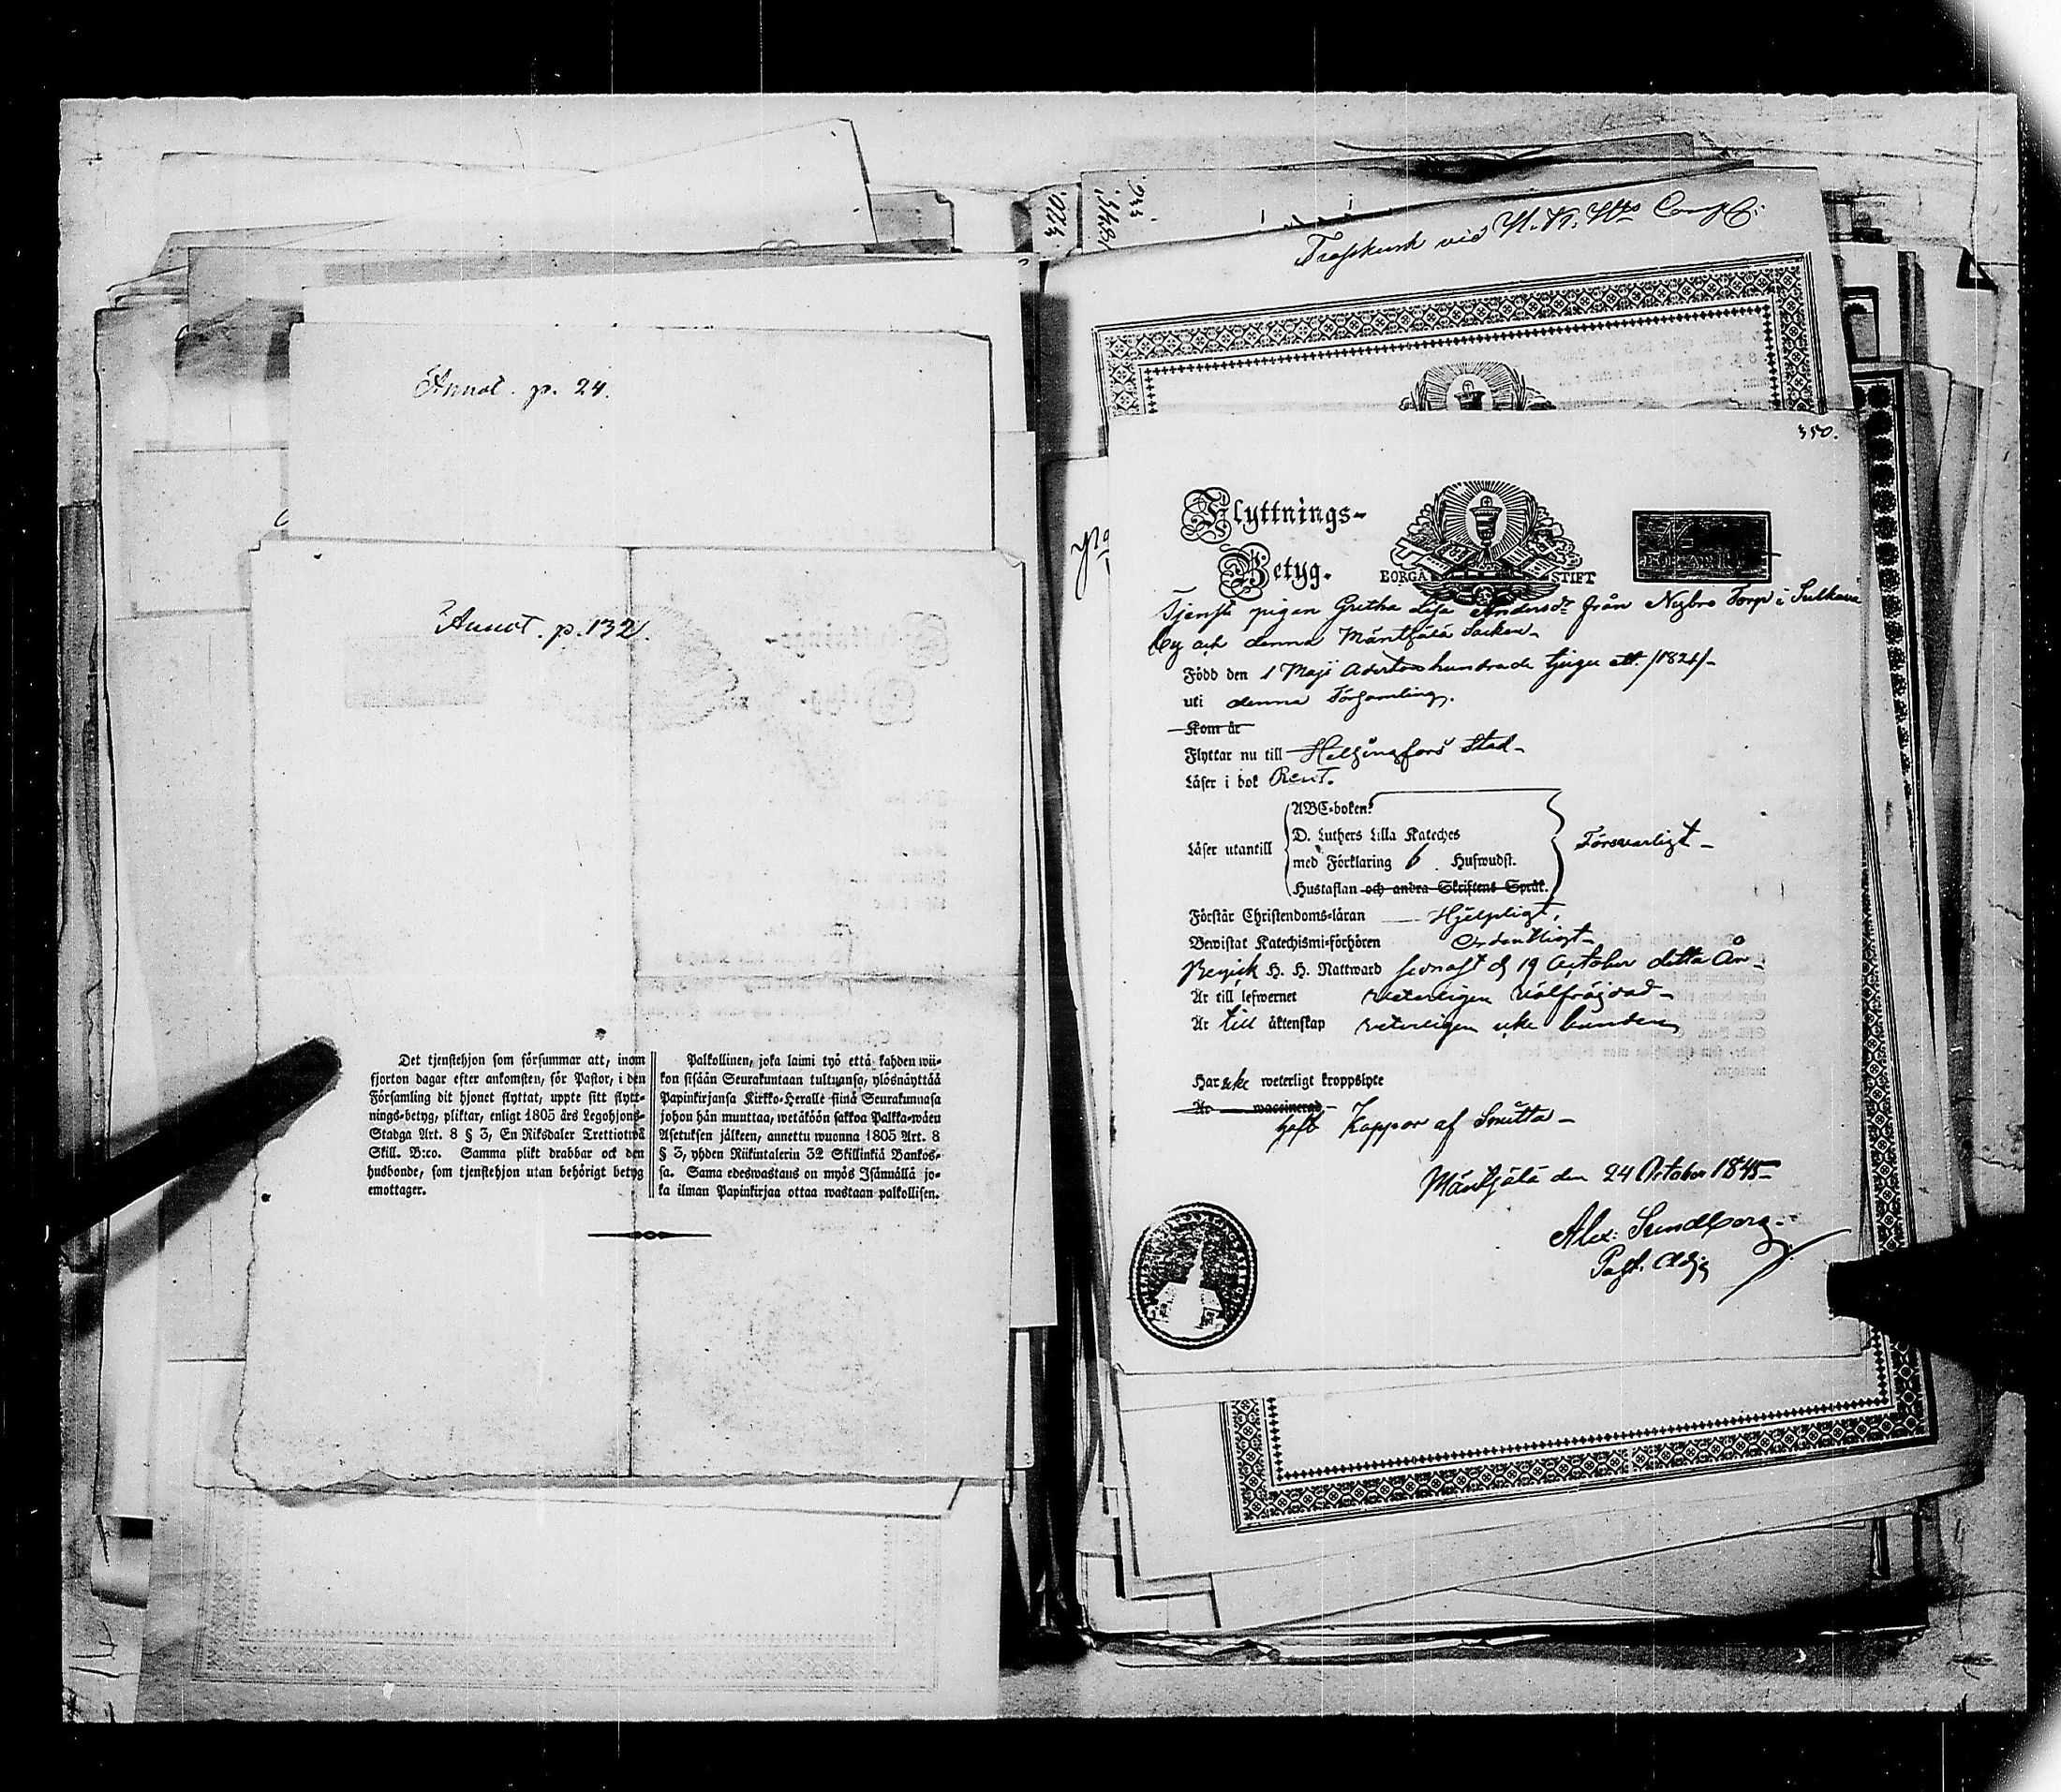 Annot. p. 24.
Annot. p. 132.
Det tjenstehjon som försummar att, inom
fjorton dagar efter ankomsten, för Pastor, i den
Församling dit hjonet flyttat, uppte sitt flytt-
nings-betyg, pliktar, enligt 1805 års Legohjons-
Stadga Art. 8 § 3, En Riksdaler Trettiotwå
Skill. B:co. Samma plikt drabbar ock den
husbonde, som tjenstehjon utan behörigt betyg
emottager.
Palkollinen, joka laimi työ että kahden wii-
kon sisään Seurakuntaan tultuansa, ylösnäyttää
Papinkirjansa Kirkko-Heralle siinä Seurakunnasa
johon hän muuttaa, wetäköön sakkoa Palkka-wäen
Asetuksen jälkeen, annettu wuonna 1805 Art. 8
§ 3, yhden Riikintalerin 32 Skillinkiä Bankos-
sa. Sama edeswastaus on myös Isännällä jo-
ka ilman Papinkirjaa ottaa wastaan palkollisen.
350.
Flyttnings-
Betyg.
BORGÅ STIFT
Tjenste pigan Gretha Lisa Andersdr från Nybro Torp i Sulkava
by och denna Mäntsälä Socken
Född den 1 Maji Adertonhundrade tjugu ett /1821/
uti denna Församling.
Kom år
Flyttar nu till Helsingfors Stad
Läser i bok Rent.
Läser utantill
ABC-boken
D. Luthers Lilla Kateches
med Förklaring 6 Hufwudst.
Hustaflan och andra Skriftens Språk.
Försvarligt
Förstår Christendoms-läran Hjelpligt,
Bewistat Katechismi-förhören Ordentligt
Begick H. H. Nattward sednast d 19 October detta År
Är till lefwernet veterligen välfräjdad
Är till äktenskap veterligen icke bunden
Har icke weterligt kroppslyte
Är waccinerad
haft Koppor af Smitta
Mäntsälä den 24 October 1845
Alex: Sundberg
Past. Adj.